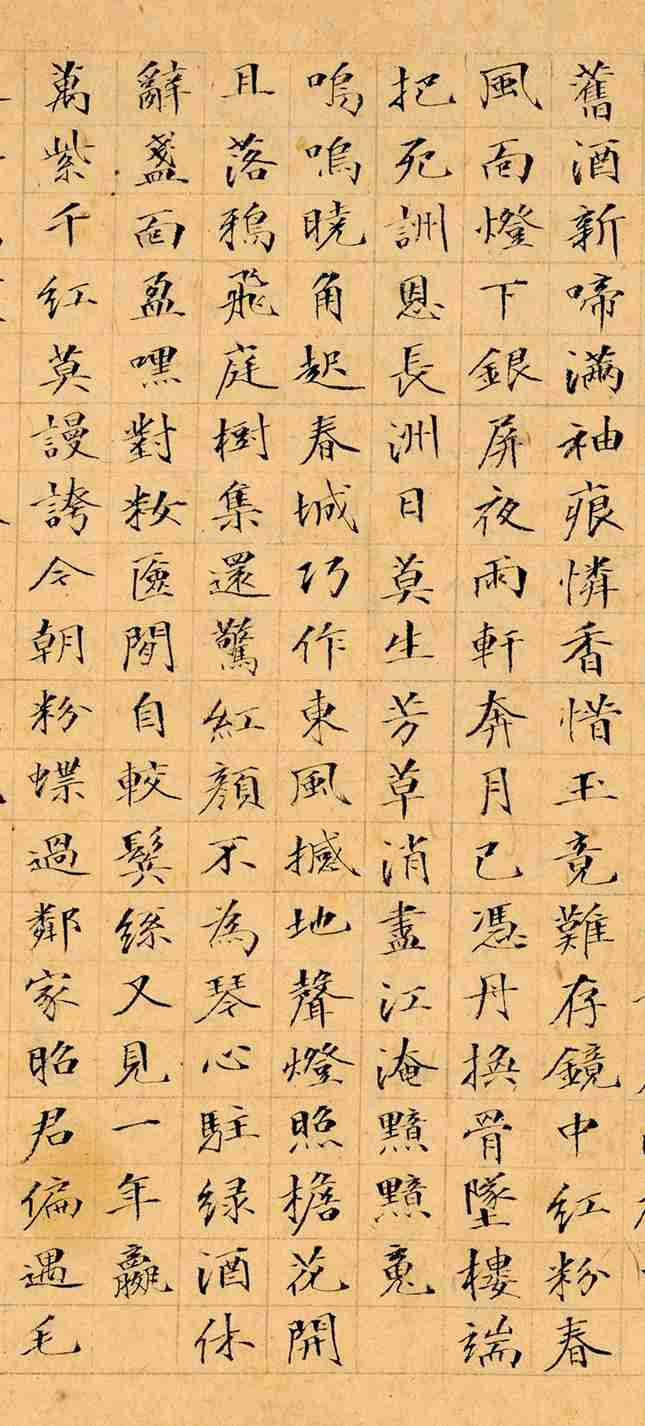 舊酒新啼滿袖痕憐香惜玉竟難存鏡中紅粉春
風面燈下銀屏夜雨軒奔月已憑丹換骨墜樓端
把死詶恩長洲日莫生芳草消盡江淹黯黯魂
嗚嗚曉角起春城巧作東風撼地聲燈照檐花開
且落鴉飛庭樹集還驚紅顏不為琴心駐綠酒休
辭盞面盈嘿對籹匳閒自較鬢絲又見一年贏
萬紫千紅莫謾誇今朝粉蝶過鄰家昭君偏遇毛